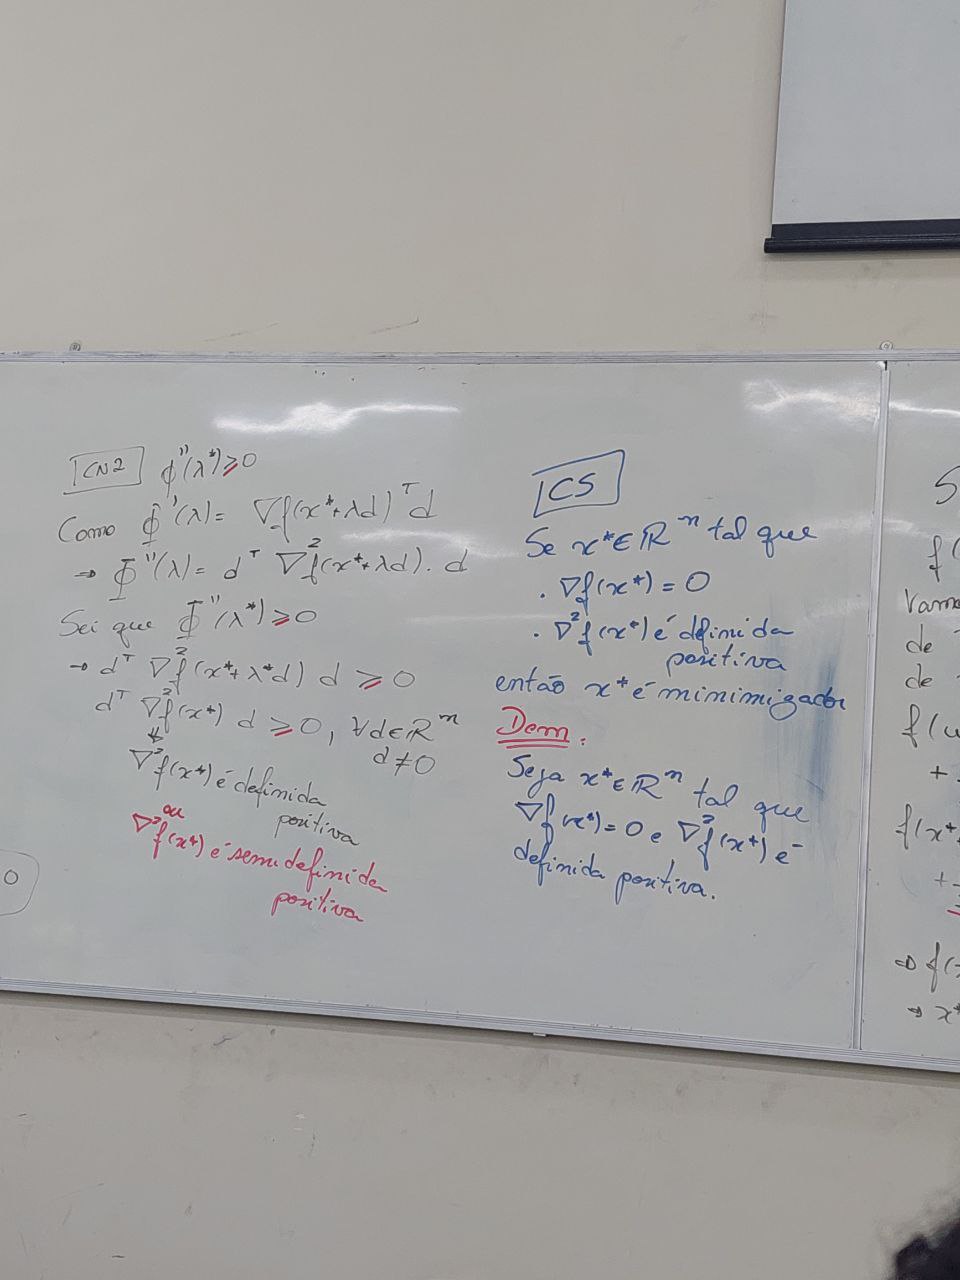 CN2 Φ''(λ*) ≥ 0
Como Φ'(λ) = ∇f(x*+λd)ᵀd
→ Φ''(λ) = dᵀ ∇²f(x*+λd). d
Sei que Φ''(λ*) ≥ 0
→ dᵀ ∇²f(x*+λ*d) d ≥ 0
dᵀ ∇²f(x*) d ≥ 0, ∀d∈ℝⁿ
d≠0
∇²f(x*) é definida
positiva
ou
∇²f(x*) é semidefinida
positiva
0
CS
Se x*∈ℝⁿ tal que
. ∇f(x*) = 0
. ∇²f(x*) é definida
positiva
então x* é minimizador
Dem.
Seja x*∈ℝⁿ tal que
∇f(x*) = 0 e ∇²f(x*) é
definida positiva.
S
f(
Vamo
de
de
f(
+
f(x*
+
⇒ f(
→ x*